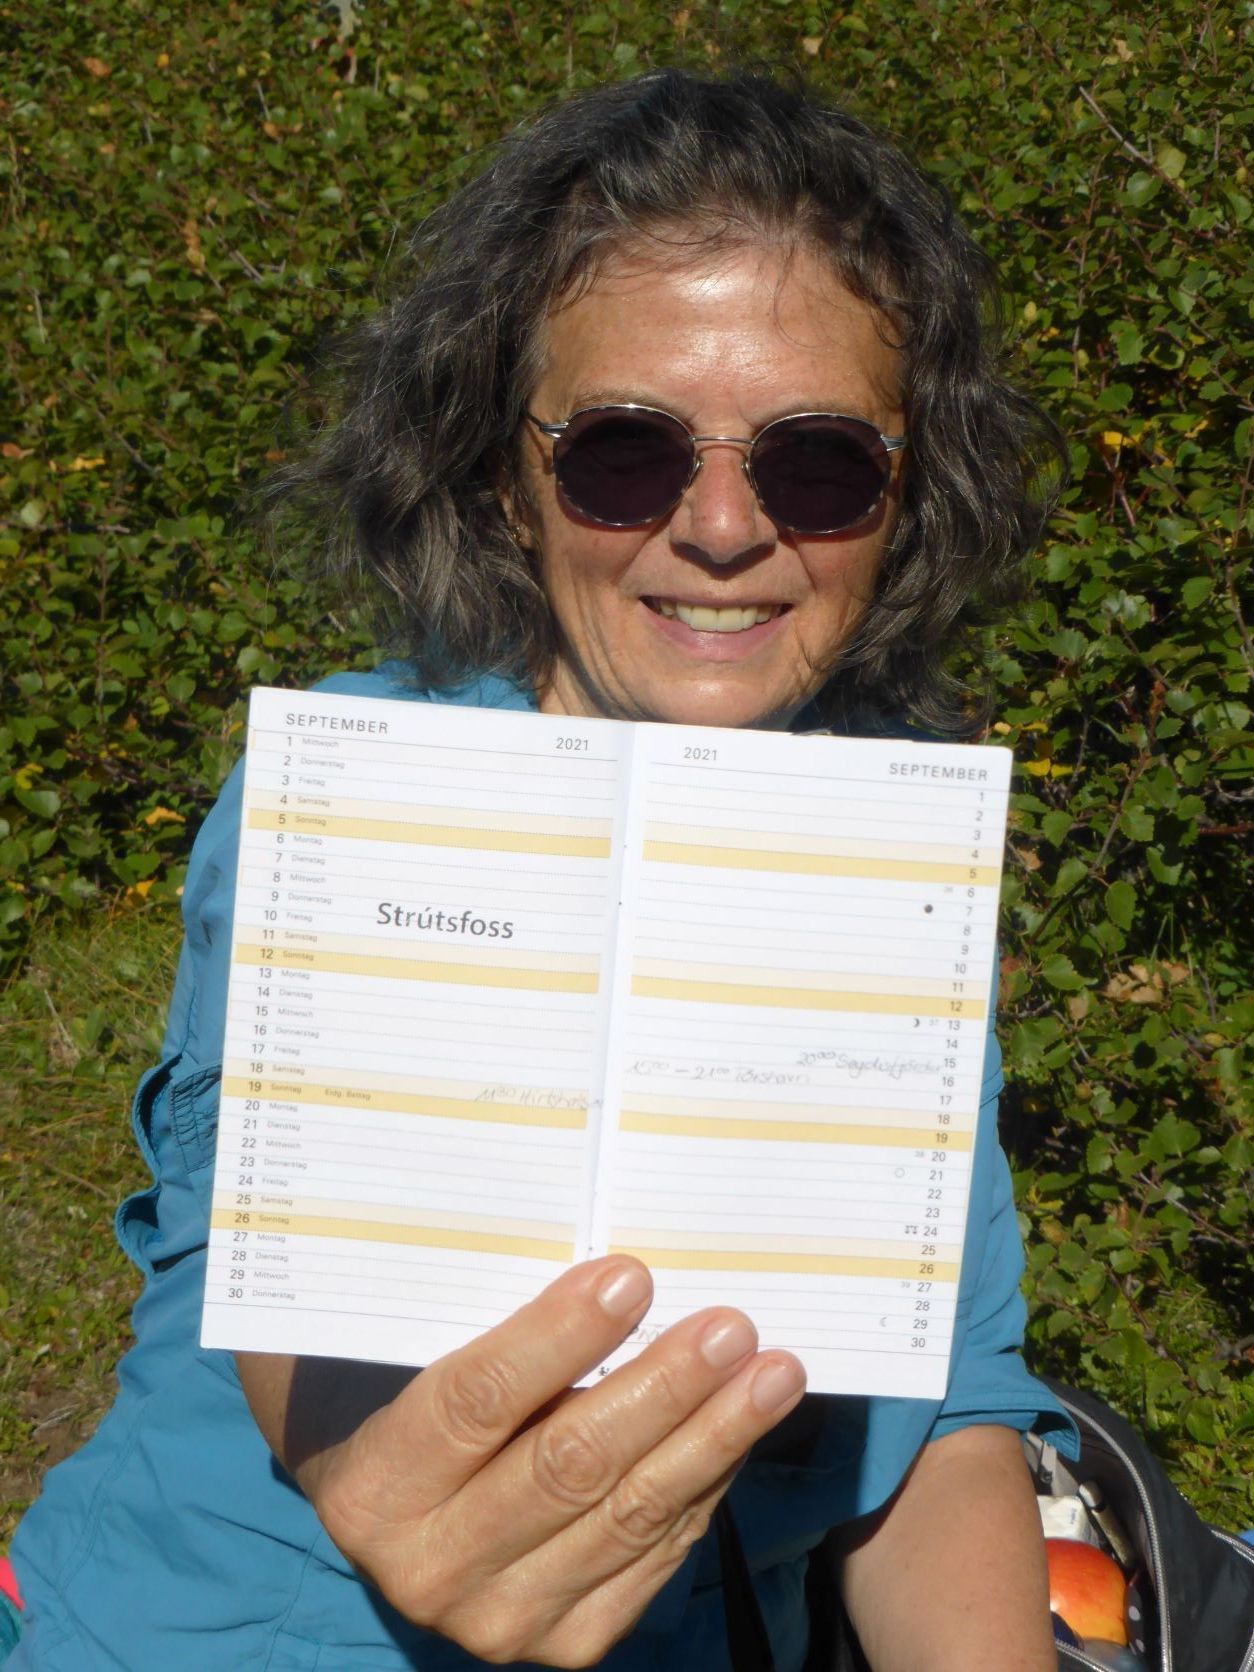 SEPTEMBER 2021
1 Mittwoch
2 Donnerstag
3 Freitag
4 Samstag
5 Sonntag
6 Montag
7 Dienstag
8 Mittwoch
9 Donnerstag
10 Freitag
Strútsfoss
11 Samstag
12 Sonntag
13 Montag
14 Dienstag
15 Mittwoch
16 Donnerstag
17 Freitag
18 Samstag
19 Sonntag Eidg. Bettag
20 Montag
21 Dienstag
22 Mittwoch
23 Donnerstag
24 Freitag
25 Samstag
26 Sonntag
27 Montag
28 Dienstag
29 Mittwoch
30 Donnerstag
2021 SEPTEMBER
1
2
3
4
5
36 6
7
8
9
10
11
12
37 13
14
15
1500 – 2100 Tórshavn 16
17
18
19
38 20
21
22
23
24
25
26
39 27
28
29
30